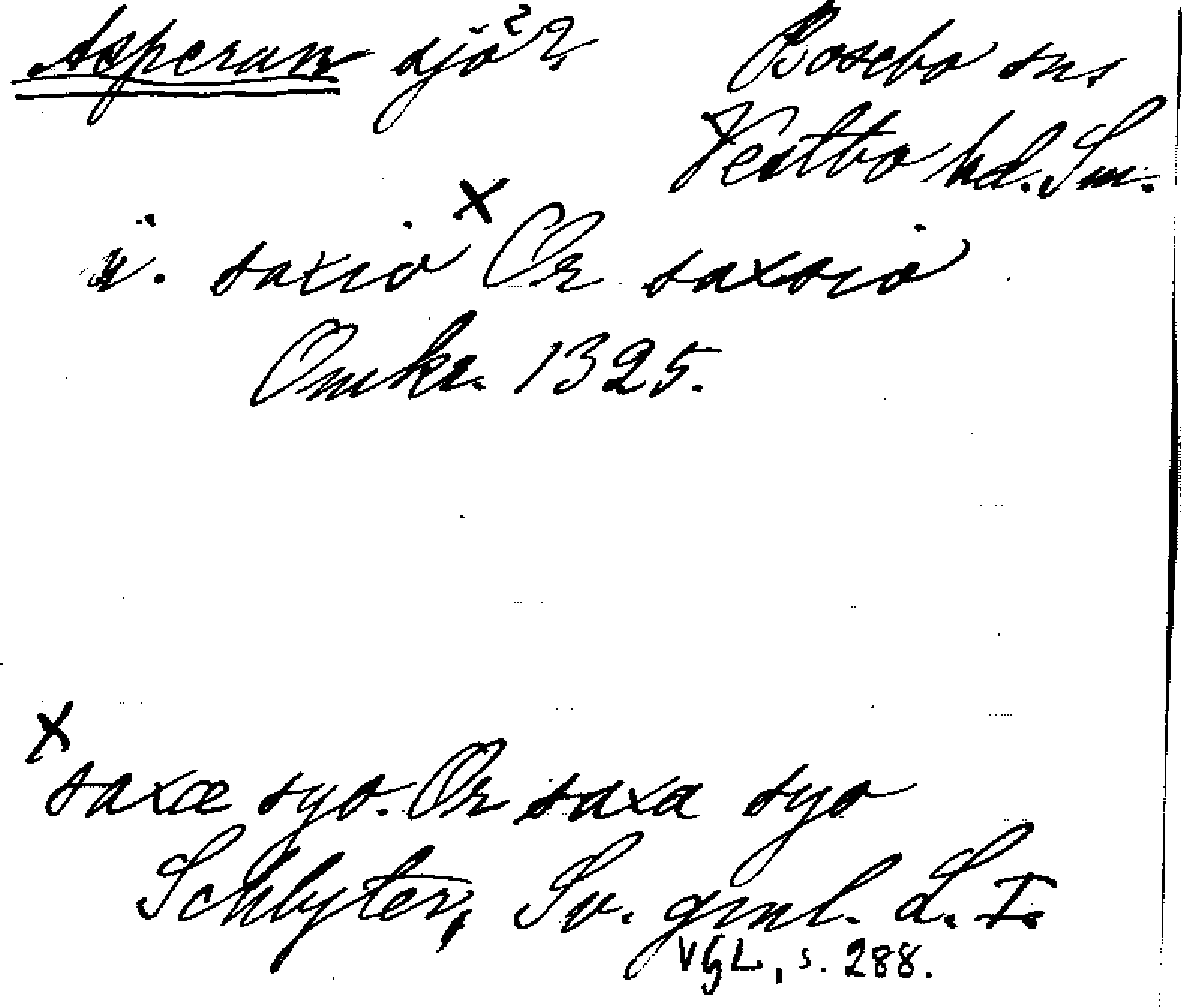 Asperan sjö? Bosebo sn
Västbo hd. Sm.
i. saxio x Or saxoio
Omkr. 1325.
x
saxæ syo. Or saxa syo
Schlyter, Sv. gml. L. I.
VGL, s. 288.